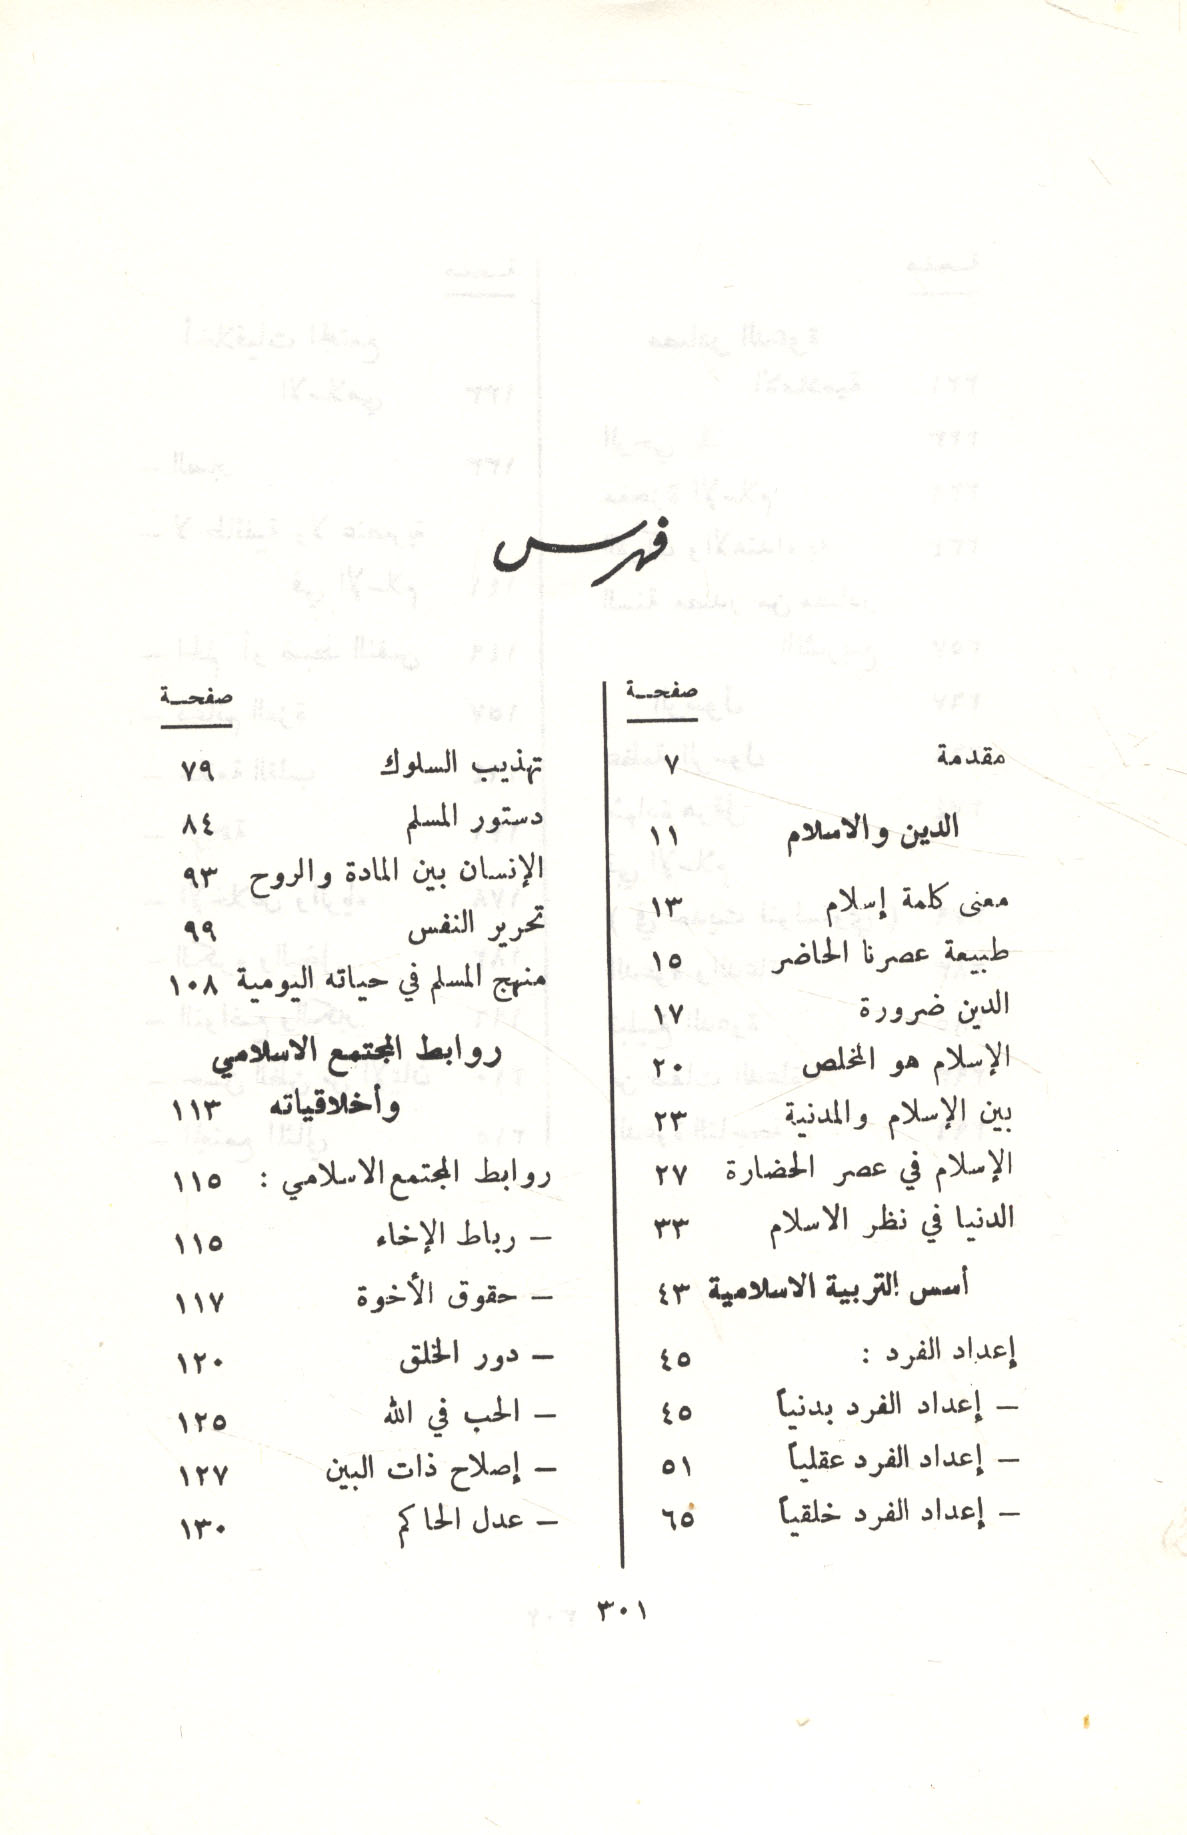 فهرس
صفحـة
مقدمة ٧
الدين والاسلام ١١
معنى كلمة إسلام ١٣
طبيعة عصرنا الحاضر ١٥
الدين ضرورة ١٧
الإسلام هو المخلص ٢٠
بين الإسلام والمدنية ٢٣
الإسلام في عصر الحضارة ٢٧
الدنيا في نظر الاسلام ٣٣
أسس التربية الاسلامية ٤٣
إعداد الفرد : ٤٥
– إعداد الفرد بدنياً ٤٥
– إعداد الفرد عقلياً ٥١
– إعداد الفرد خلقياً ٦٥
صفحـة
تهذيب السلوك ٧٩
دستور المسلم ٨٤
الإنسان بين المادة والروح ٩٣
تحرير النفس ٩٩
منهج المسلم في حياته اليومية ١٠٨
روابط المجتمع الاسلامي
وأخلاقياته ١١٣
روابط المجتمع الاسلامي : ١١٥
– رباط الإخاء ١١٥
– حقوق الأخوة ١١٧
– دور الخلق ١٢٠
– الحب في الله ١٢٥
– إصلاح ذات البين ١٢٧
– عدل الحاكم ١٣٠
٣٠١